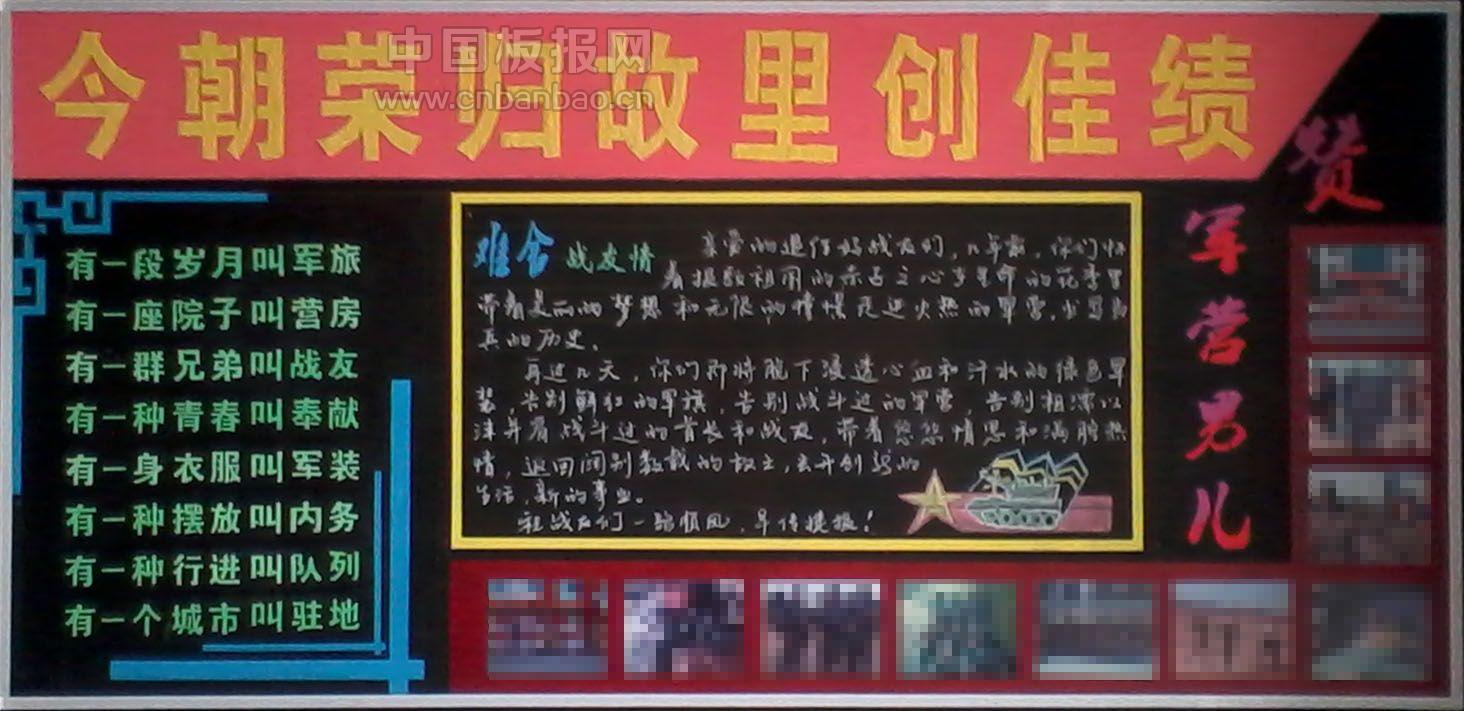 今朝荣归故里创佳绩
中国板报网
www.cnbanbao.cn
赞
军营男儿
有一段岁月叫军旅
有一座院子叫营房
有一群兄弟叫战友
有一种青春叫奉献
有一身衣服叫军装
有一种摆放叫内务
有一种行进叫队列
有一个城市叫驻地
难舍战友情
亲爱的退伍好战友们，几年前，你们怀
着报效祖国的赤占之心于生命的花季里
带着美丽的梦想和无限的憧憬走进火热的军营，书写
真的历史。
再过几天，你们即将脱下浸透心血和汗水的绿色军
装，告别鲜红的军旗，告别战斗过的军营，告别相濡以
沫并肩战斗过的首长和战友，带着悠悠情思和满腔热
情，返回阔别数载的故土，去开创新的
生活，新的事业。
祝战友们一路顺风，早传捷报！